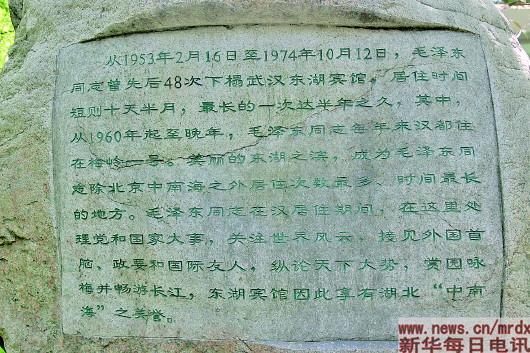 从1953年2月16日至1974年10月12日，毛泽东
同志曾先后48次下榻武汉东湖宾馆。居住时间
短则十天半月，最长的一次达半年之久，其中，
从1960年起至晚年，毛泽东同志每年来汉都住
在梅岭一号。美丽的东湖之滨，成为毛泽东同
志除北京中南海之外居住次数最多、时间最长
的地方。毛泽东同志在汉居住期间，在这里处
理党和国家大事，关注世界风云，接见外国首
脑、政要和国际友人，纵论天下大势，赏园咏
梅并畅游长江，东湖宾馆因此享有湖北“中南
海”之美誉。
www.news.cn/mrdx
新华每日电讯